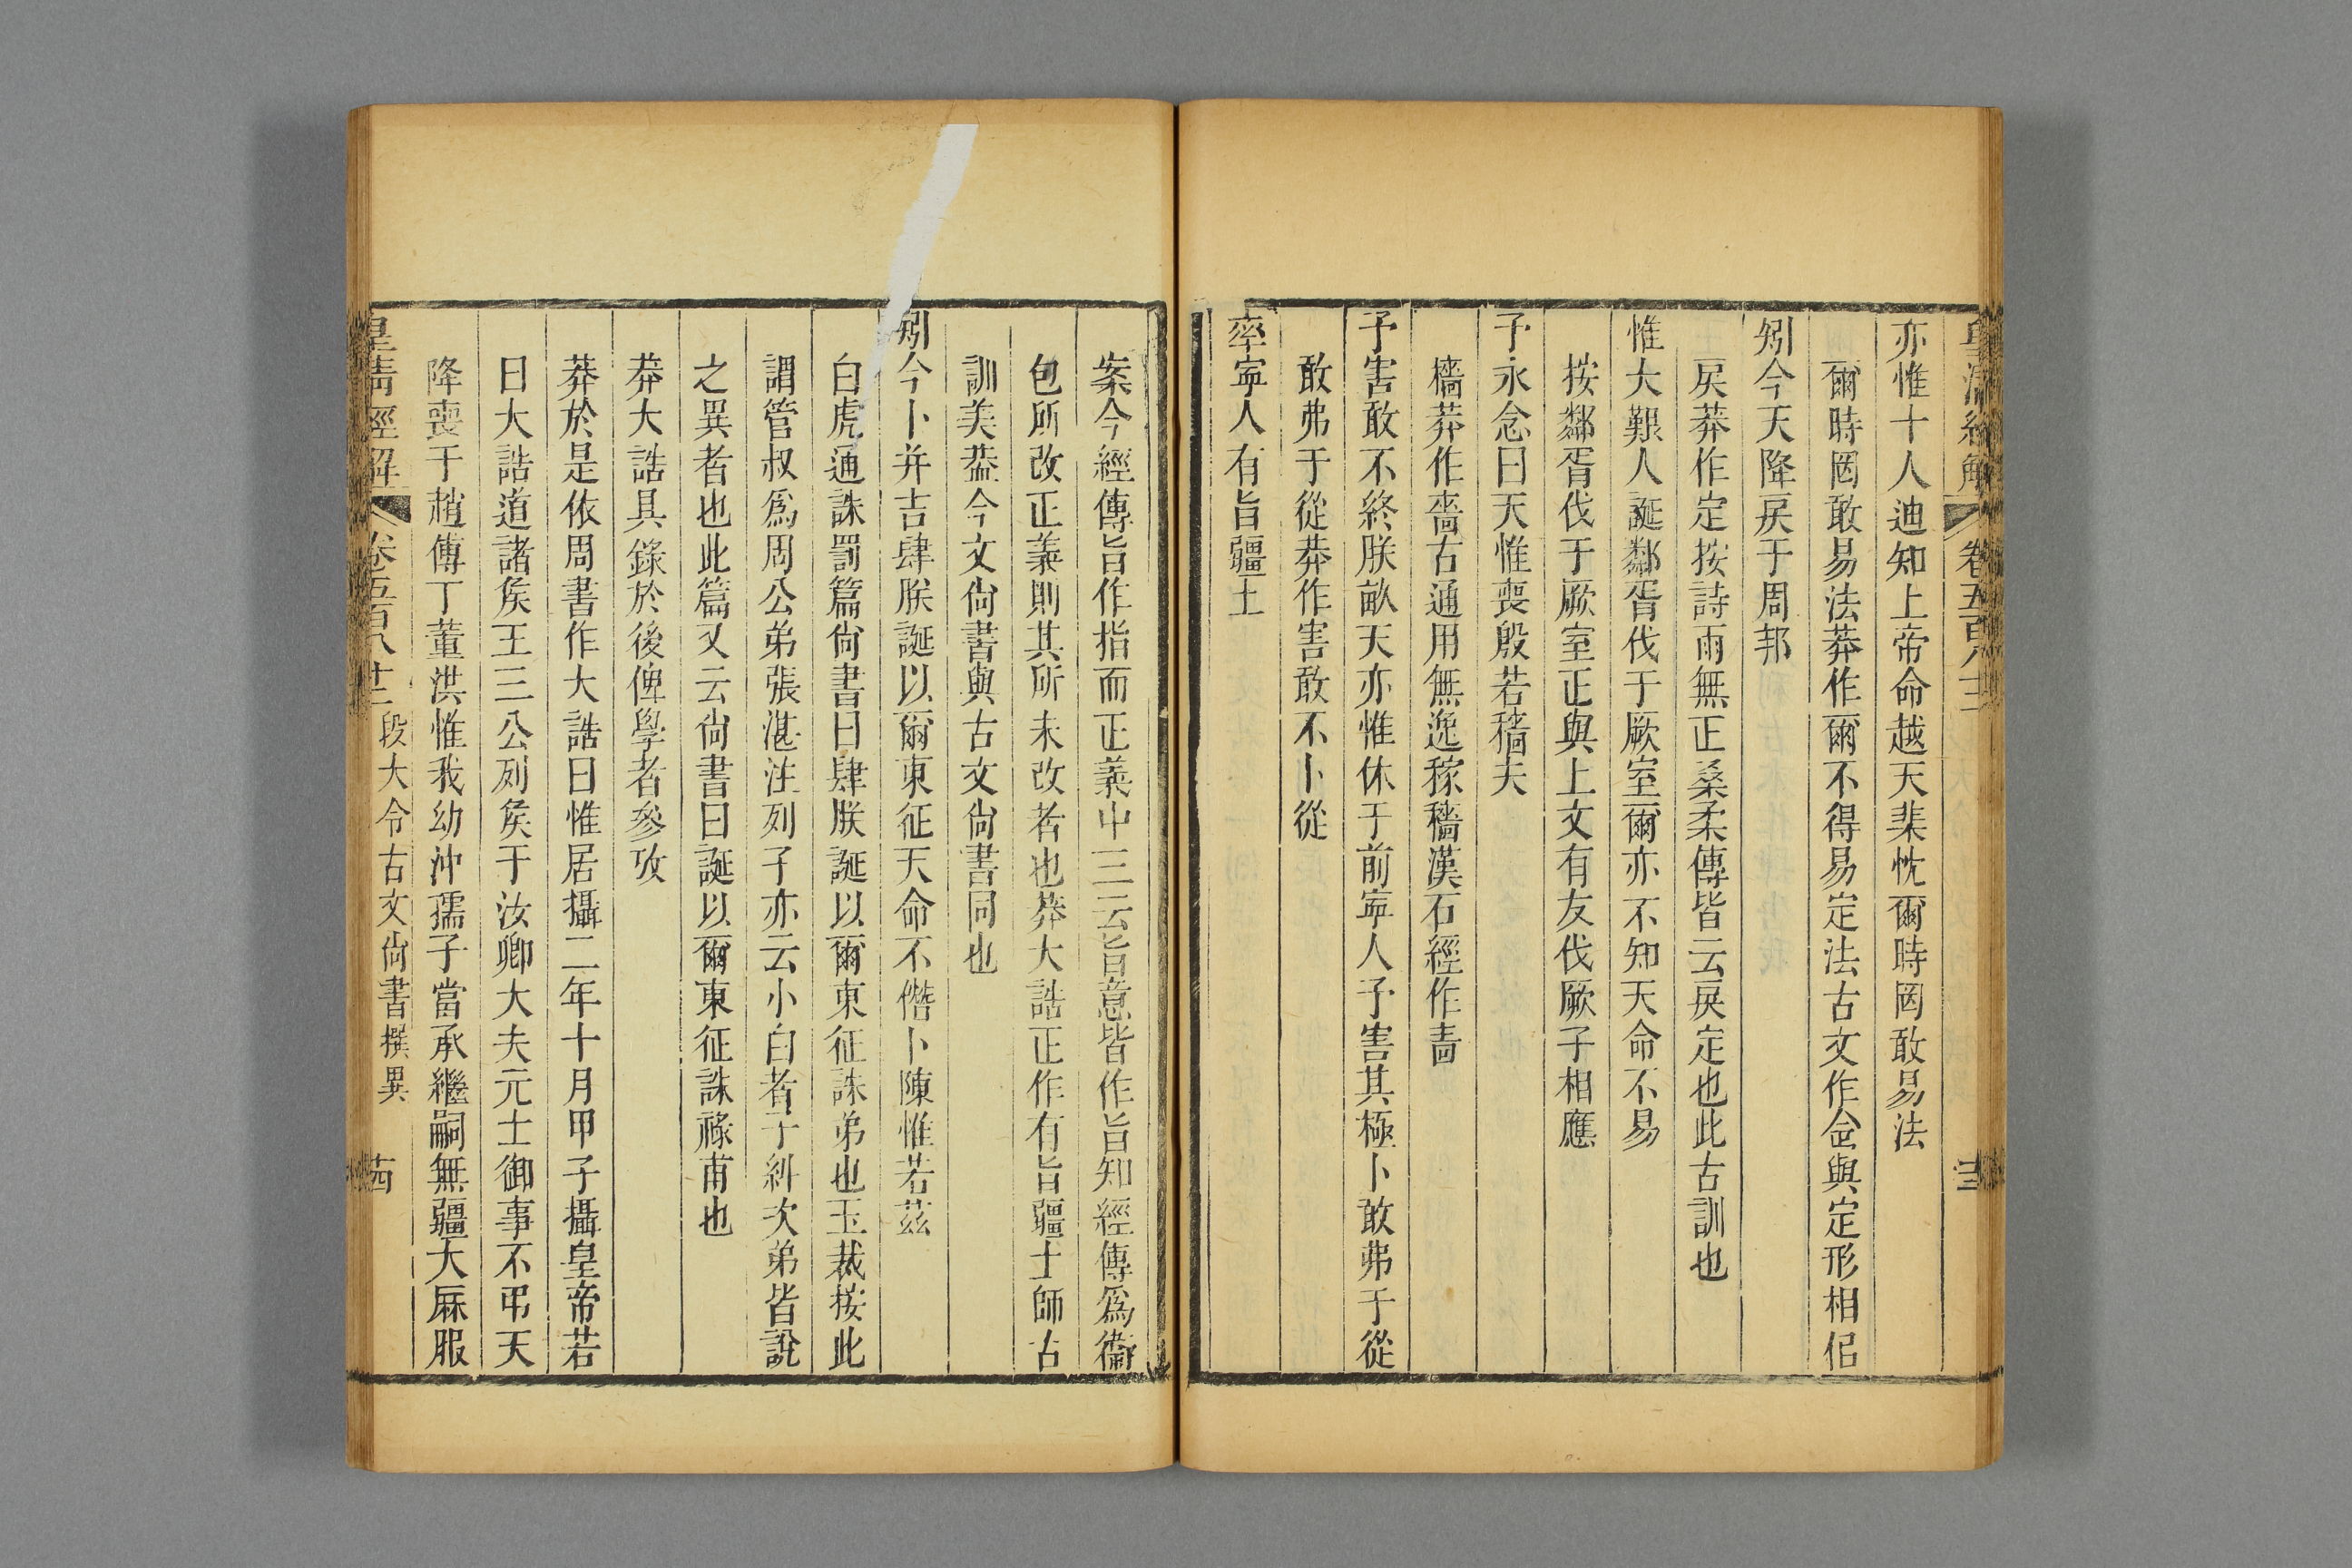 皇淸經解 卷五百八十二 十三
亦惟十人迪知上帝命越天棐忱爾時罔敢易法
爾時罔敢易法莽作爾不得易定法古文作㝎與定形相佀
矧今天降戾于周邦
戾莽作定按詩雨無正桑柔傳皆云戾定也此古訓也
惟大艱人誕鄰胥伐于厥室爾亦不知天命不易
按鄰胥伐于厥室正與上文有友伐厥子相應
予永念曰天惟喪殷若穡夫
穡莽作嗇古通用無逸稼穡漢石經作嗇
予害敢不終朕畝天亦惟休于前寧人予害其極卜敢弗于從
敢弗于從莽作害敢不卜從
率寧人有旨疆土
案今經傳旨作指而正義中三云旨意皆作旨知經傳爲衞
包所改正義則其所未改者也莽大誥正作有旨疆土師古
訓美葢今文尙書與古文尙書同也
矧今卜并吉肆朕誕以爾東征天命不僭卜陳惟若茲
白虎通誅罰篇尙書曰肆朕誕以爾東征誅弟也玉裁按此
謂管叔爲周公弟張湛注列子亦云小白者子糾次弟皆說
之異者也此篇又云尙書曰誕以爾東征誅祿甫也
莽大誥具錄於後俾學者參攷
莽於是依周書作大誥曰惟居攝二年十月甲子攝皇帝若
曰大誥道諸侯王三公列侯于汝卿大夫元士御事不弔天
降喪于趙傅丁董洪惟我幼沖孺子當承繼嗣無疆大厤服
皇淸經解 卷五百八十二 段大令古文尙書撰異 十四